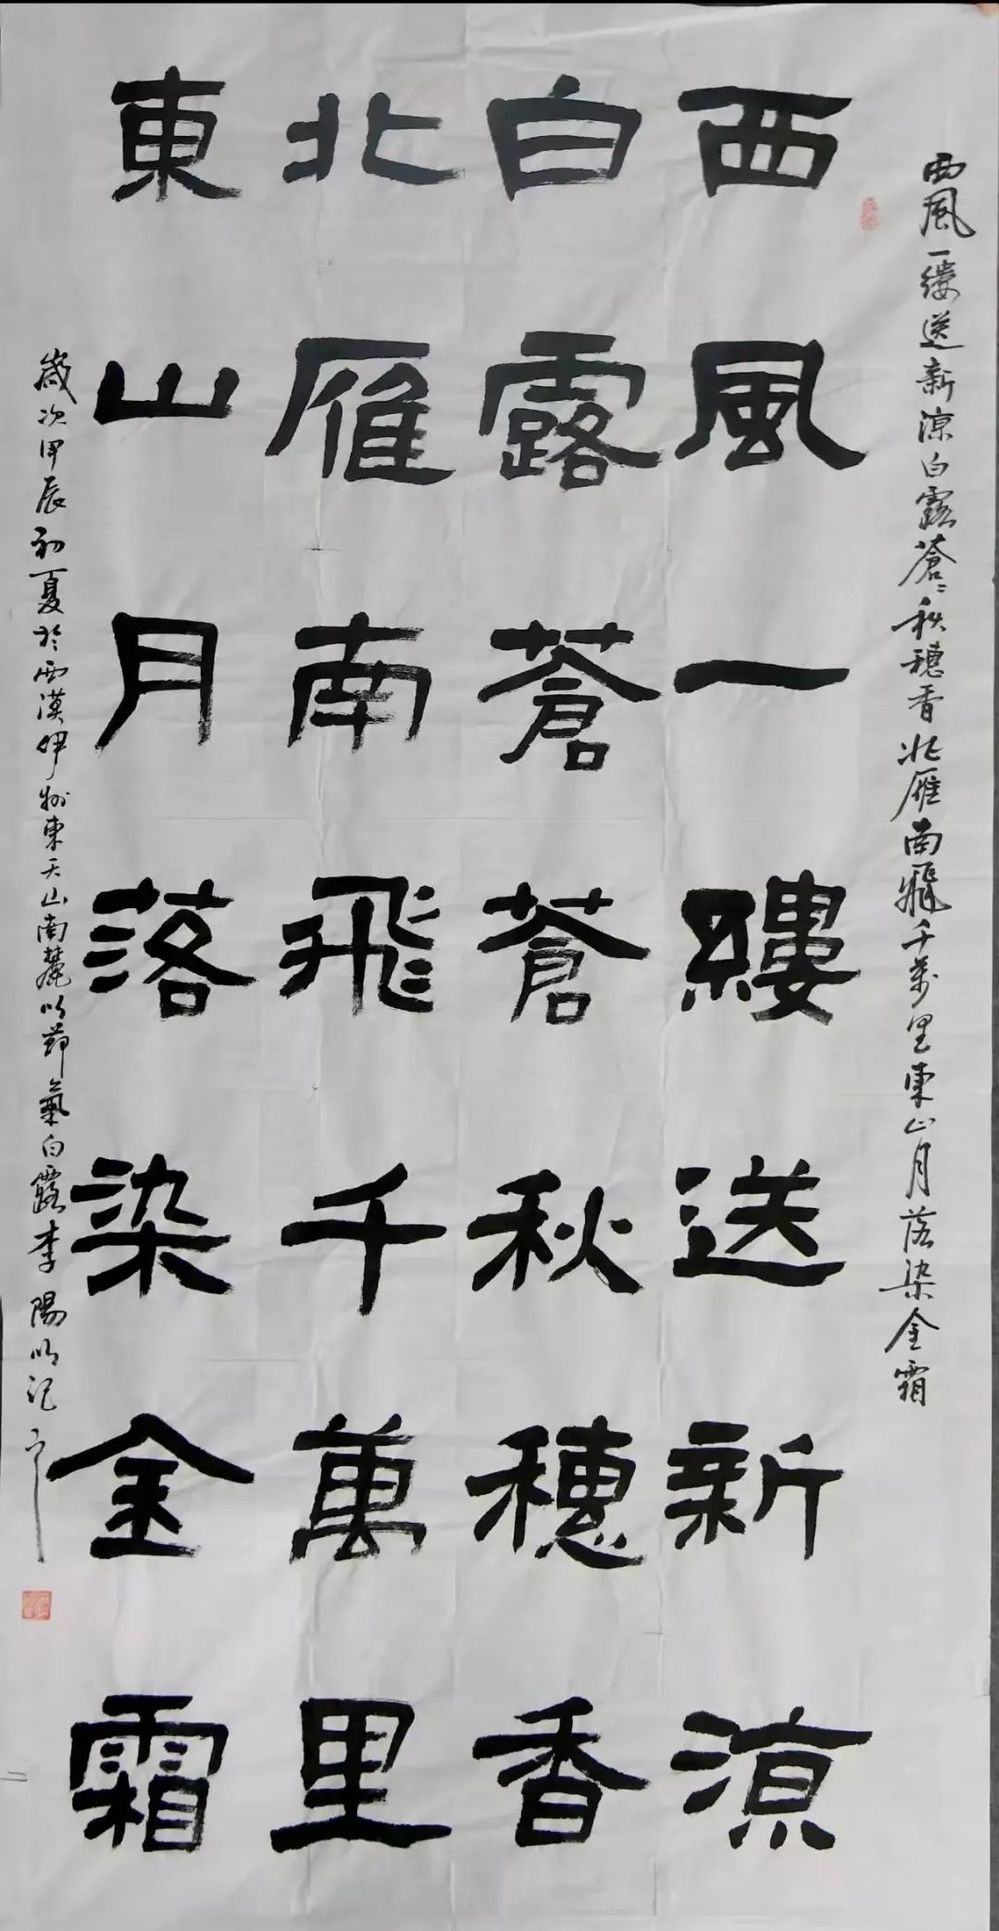 西風一縷送新涼白露蒼〻秋穗香北雁南飛千萬里東山月落染金霜
西風一縷送新涼
白露蒼蒼秋穗香
北雁南飛千萬里
東山月落染金霜
歲次甲辰初夏於西漠伊州東天山南麓以節氣白露李陽明記